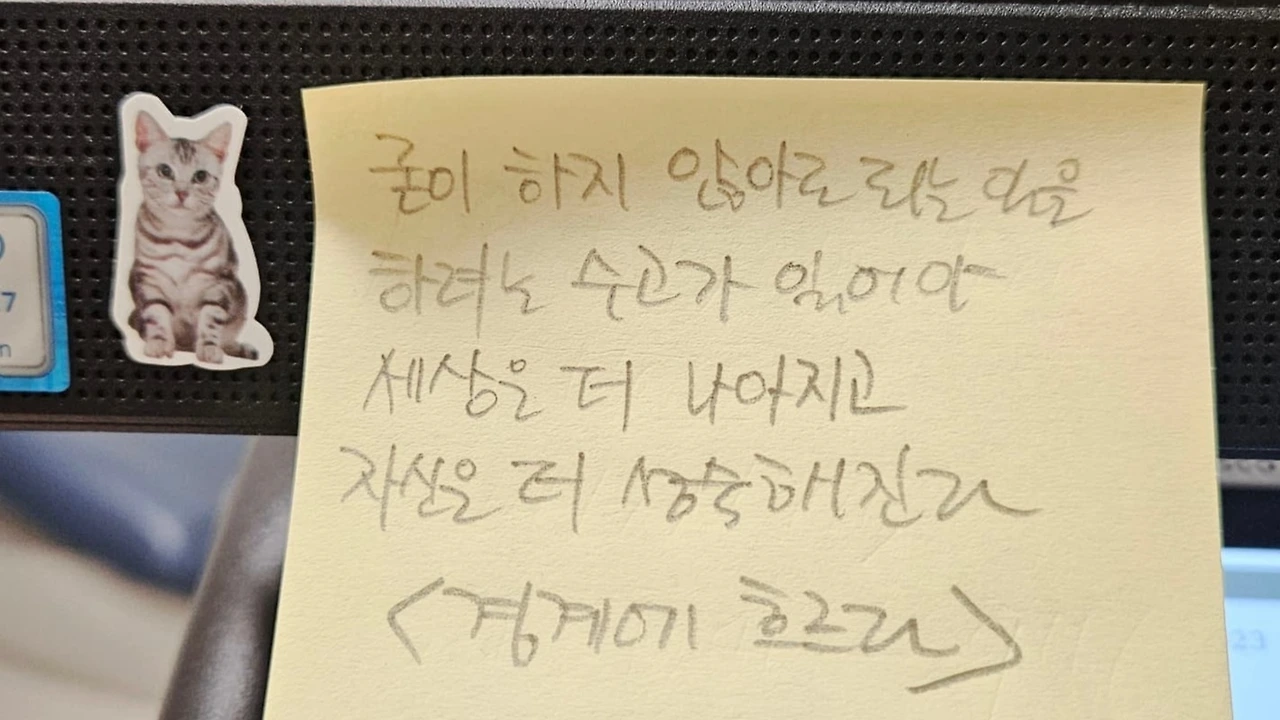 굳이 하지 않아도 되는 일을
하려는 수고가 있어야
세상은 더 나아지고
자신은 더 성숙해진다
<경계에 흐르다>
7
23